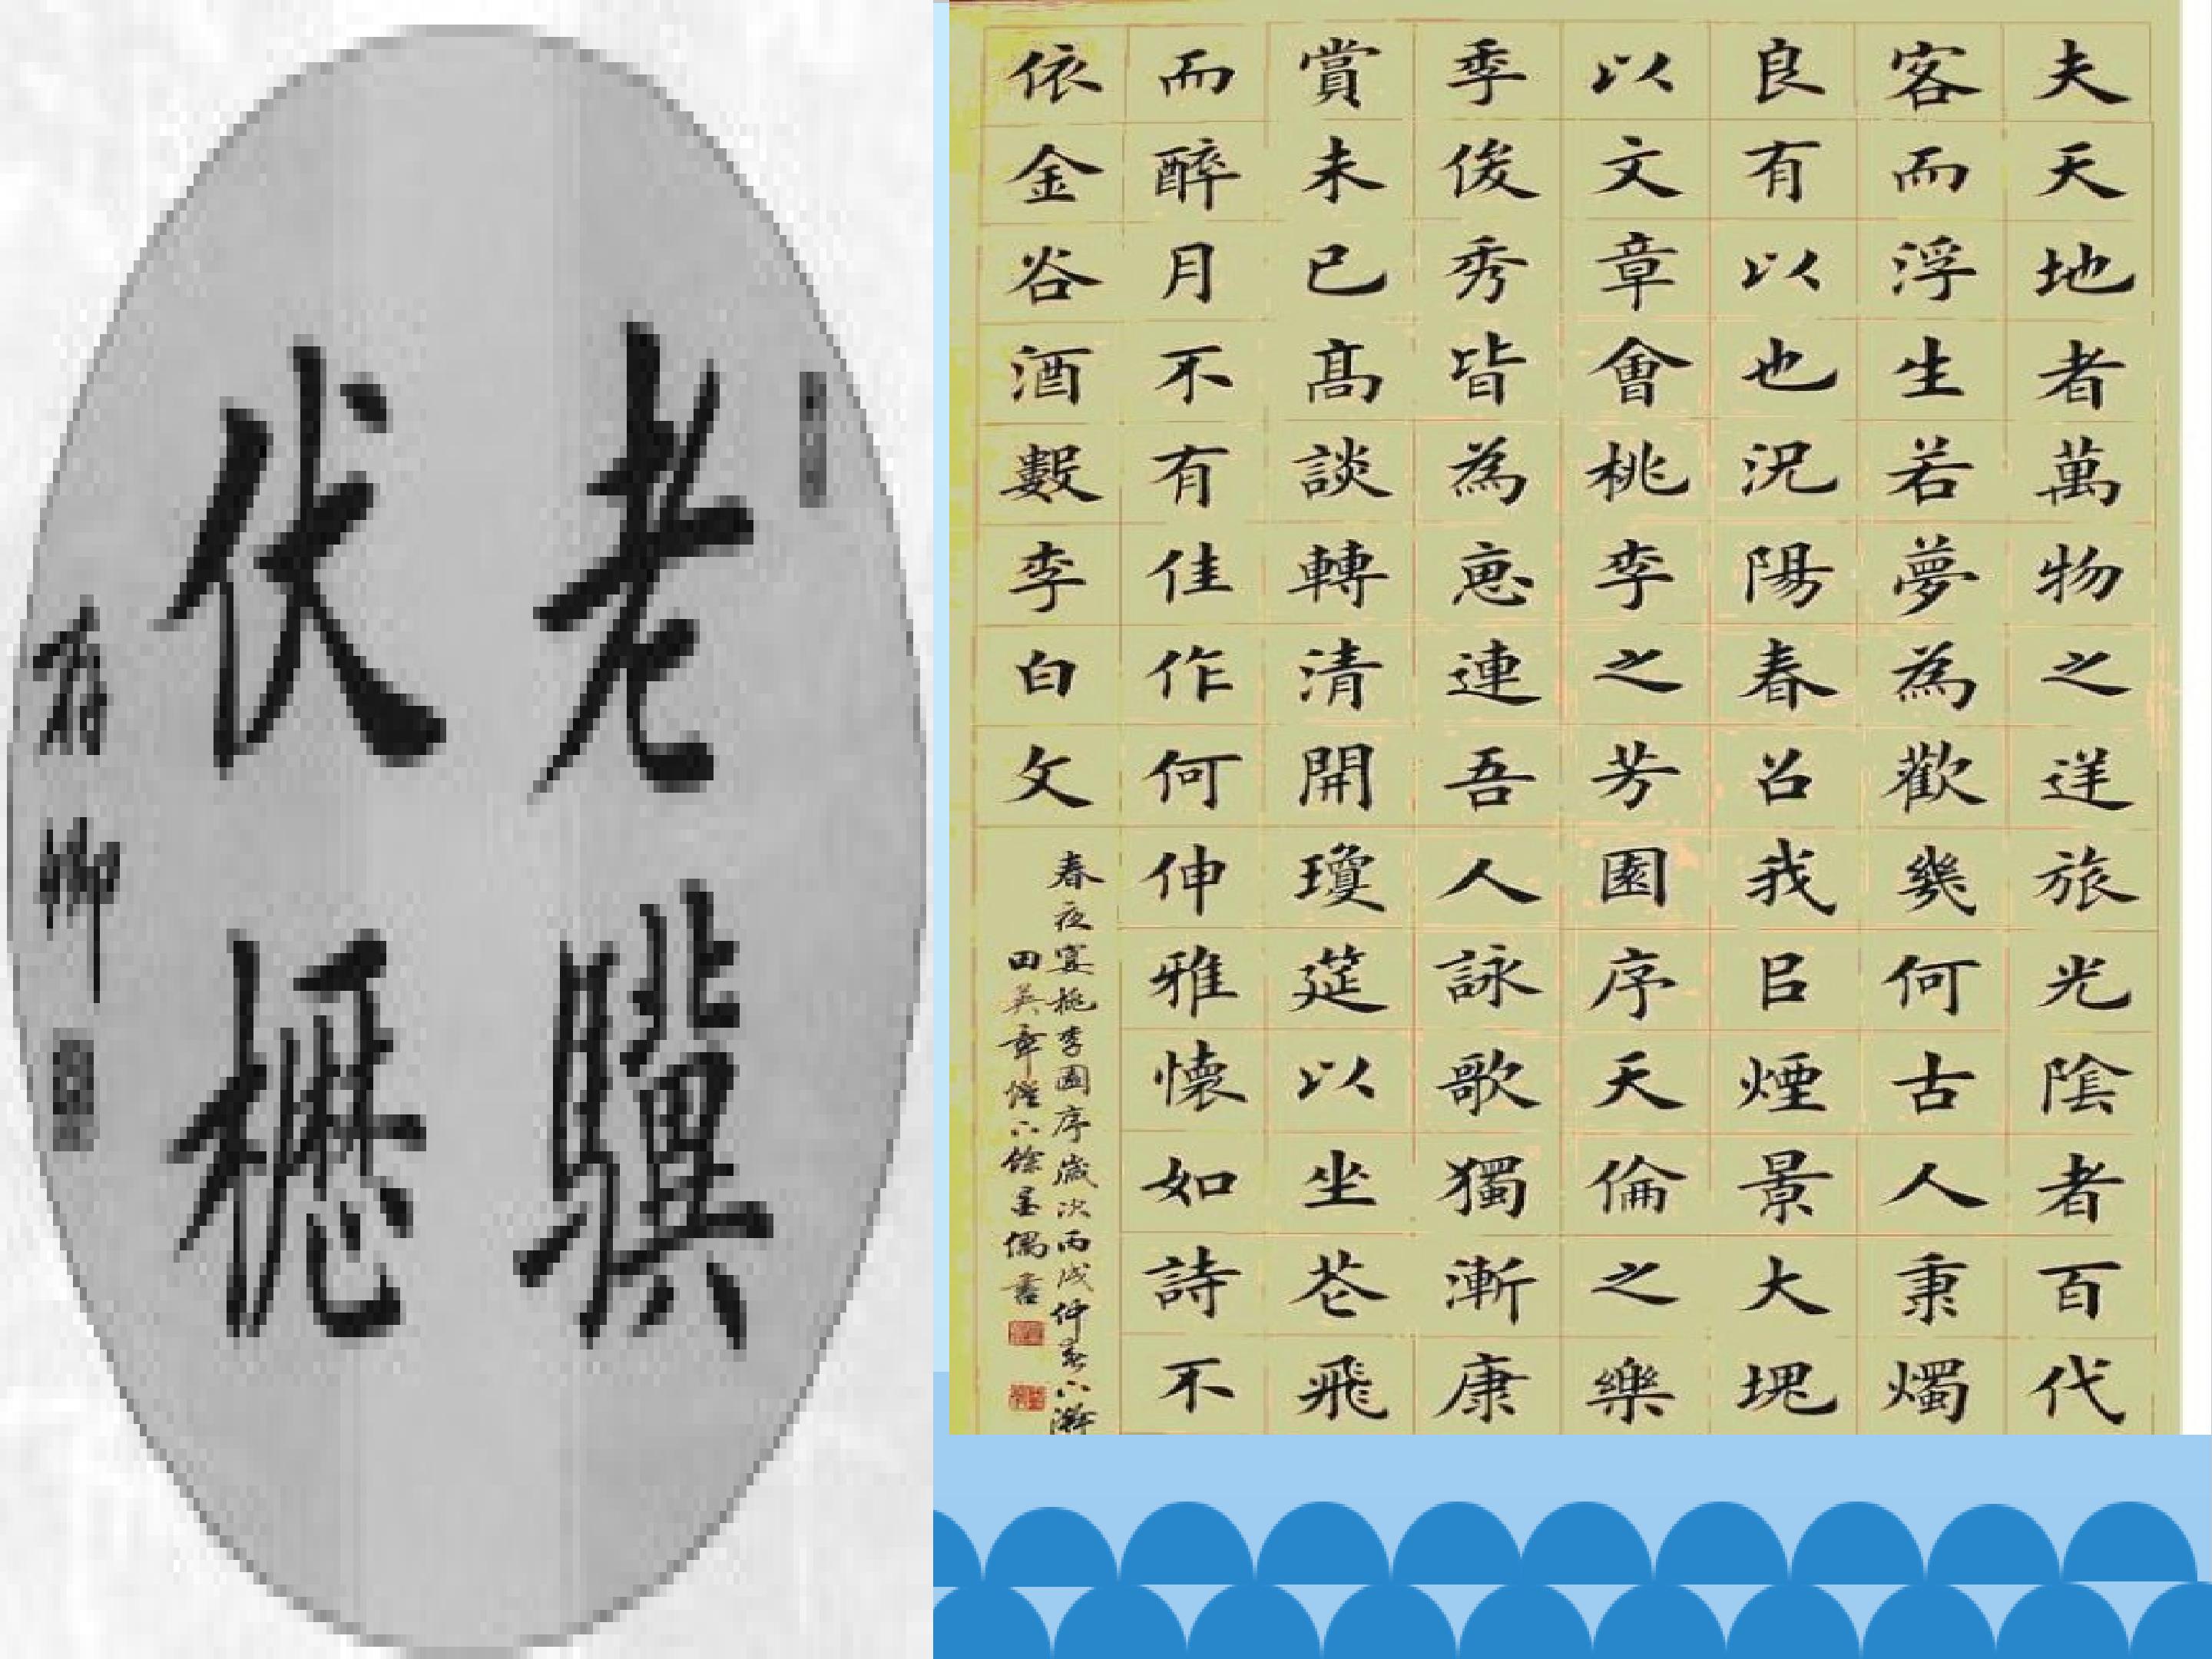 老驥
伏櫪
夫天地者萬物之逆旅光陰者百代
客而浮生若夢為歡幾何古人秉燭
良有以也況陽春召我㠯煙景大塊
以文章會桃李之芳園序天倫之樂
季俊秀皆為惠連吾人詠歌獨漸康
賞未已髙談轉清開瓊筵以坐花飛
而醉月不有佳作何伸雅懷如詩不
依金谷酒數李白文
春夜宴桃李園序歲次丙戌仲春下澣
田英章燈下餘墨偶書